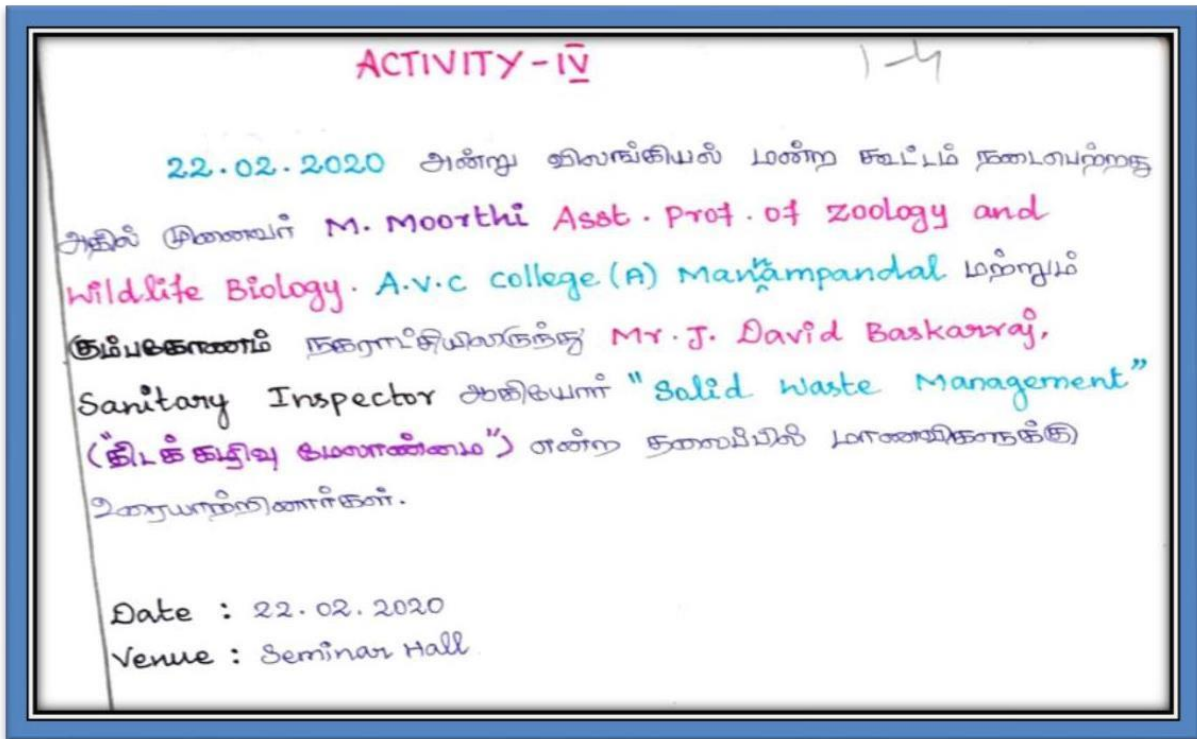 ACTIVITY - IV
1-4
22.02.2020 அன்று விலங்கியல் மன்ற கூட்டம் நடைபெற்றது
அதில் முனைவர் M. Moorthi Asst. Prof. of Zoology and
Wildlife Biology. A.V.C College (A) Manampandal மற்றும்
கும்பகோணம் நகராட்சியிலிருந்து Mr. J. David Baskarraj,
Sanitary Inspector ஆகியோர் "Solid Waste Management"
("திடக் கழிவு மேலாண்மை") என்ற தலைப்பில் மாணவிகளுக்கு
உரையாற்றினார்கள்.
Date : 22.02.2020
Venue : Seminar Hall